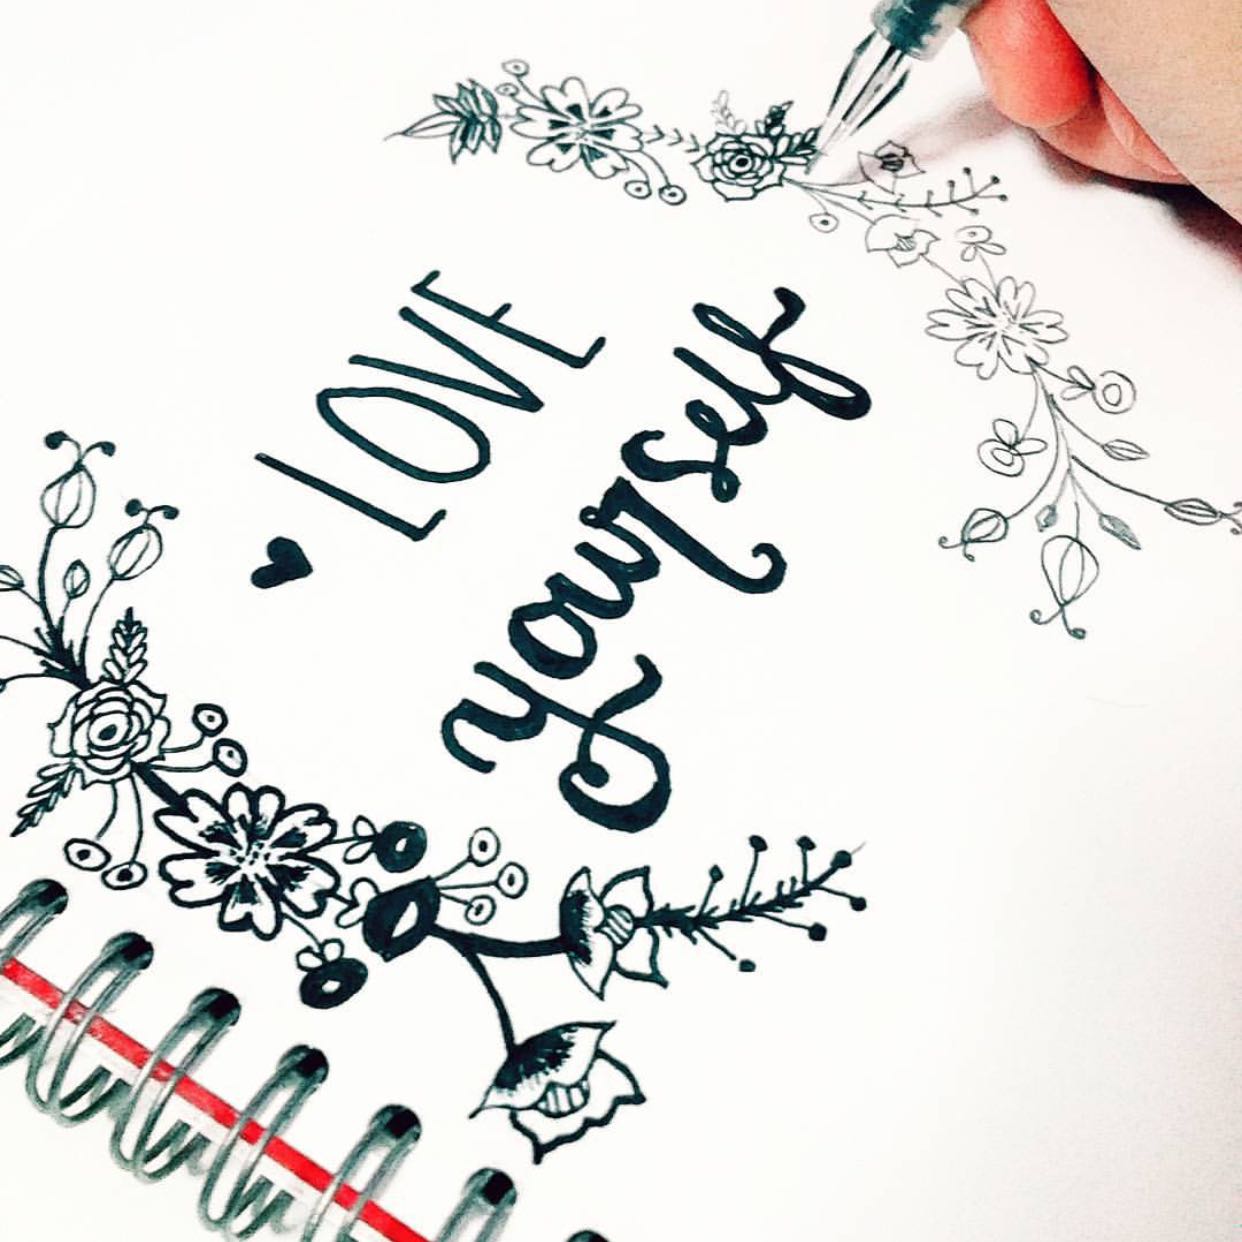 LOVE
yourself